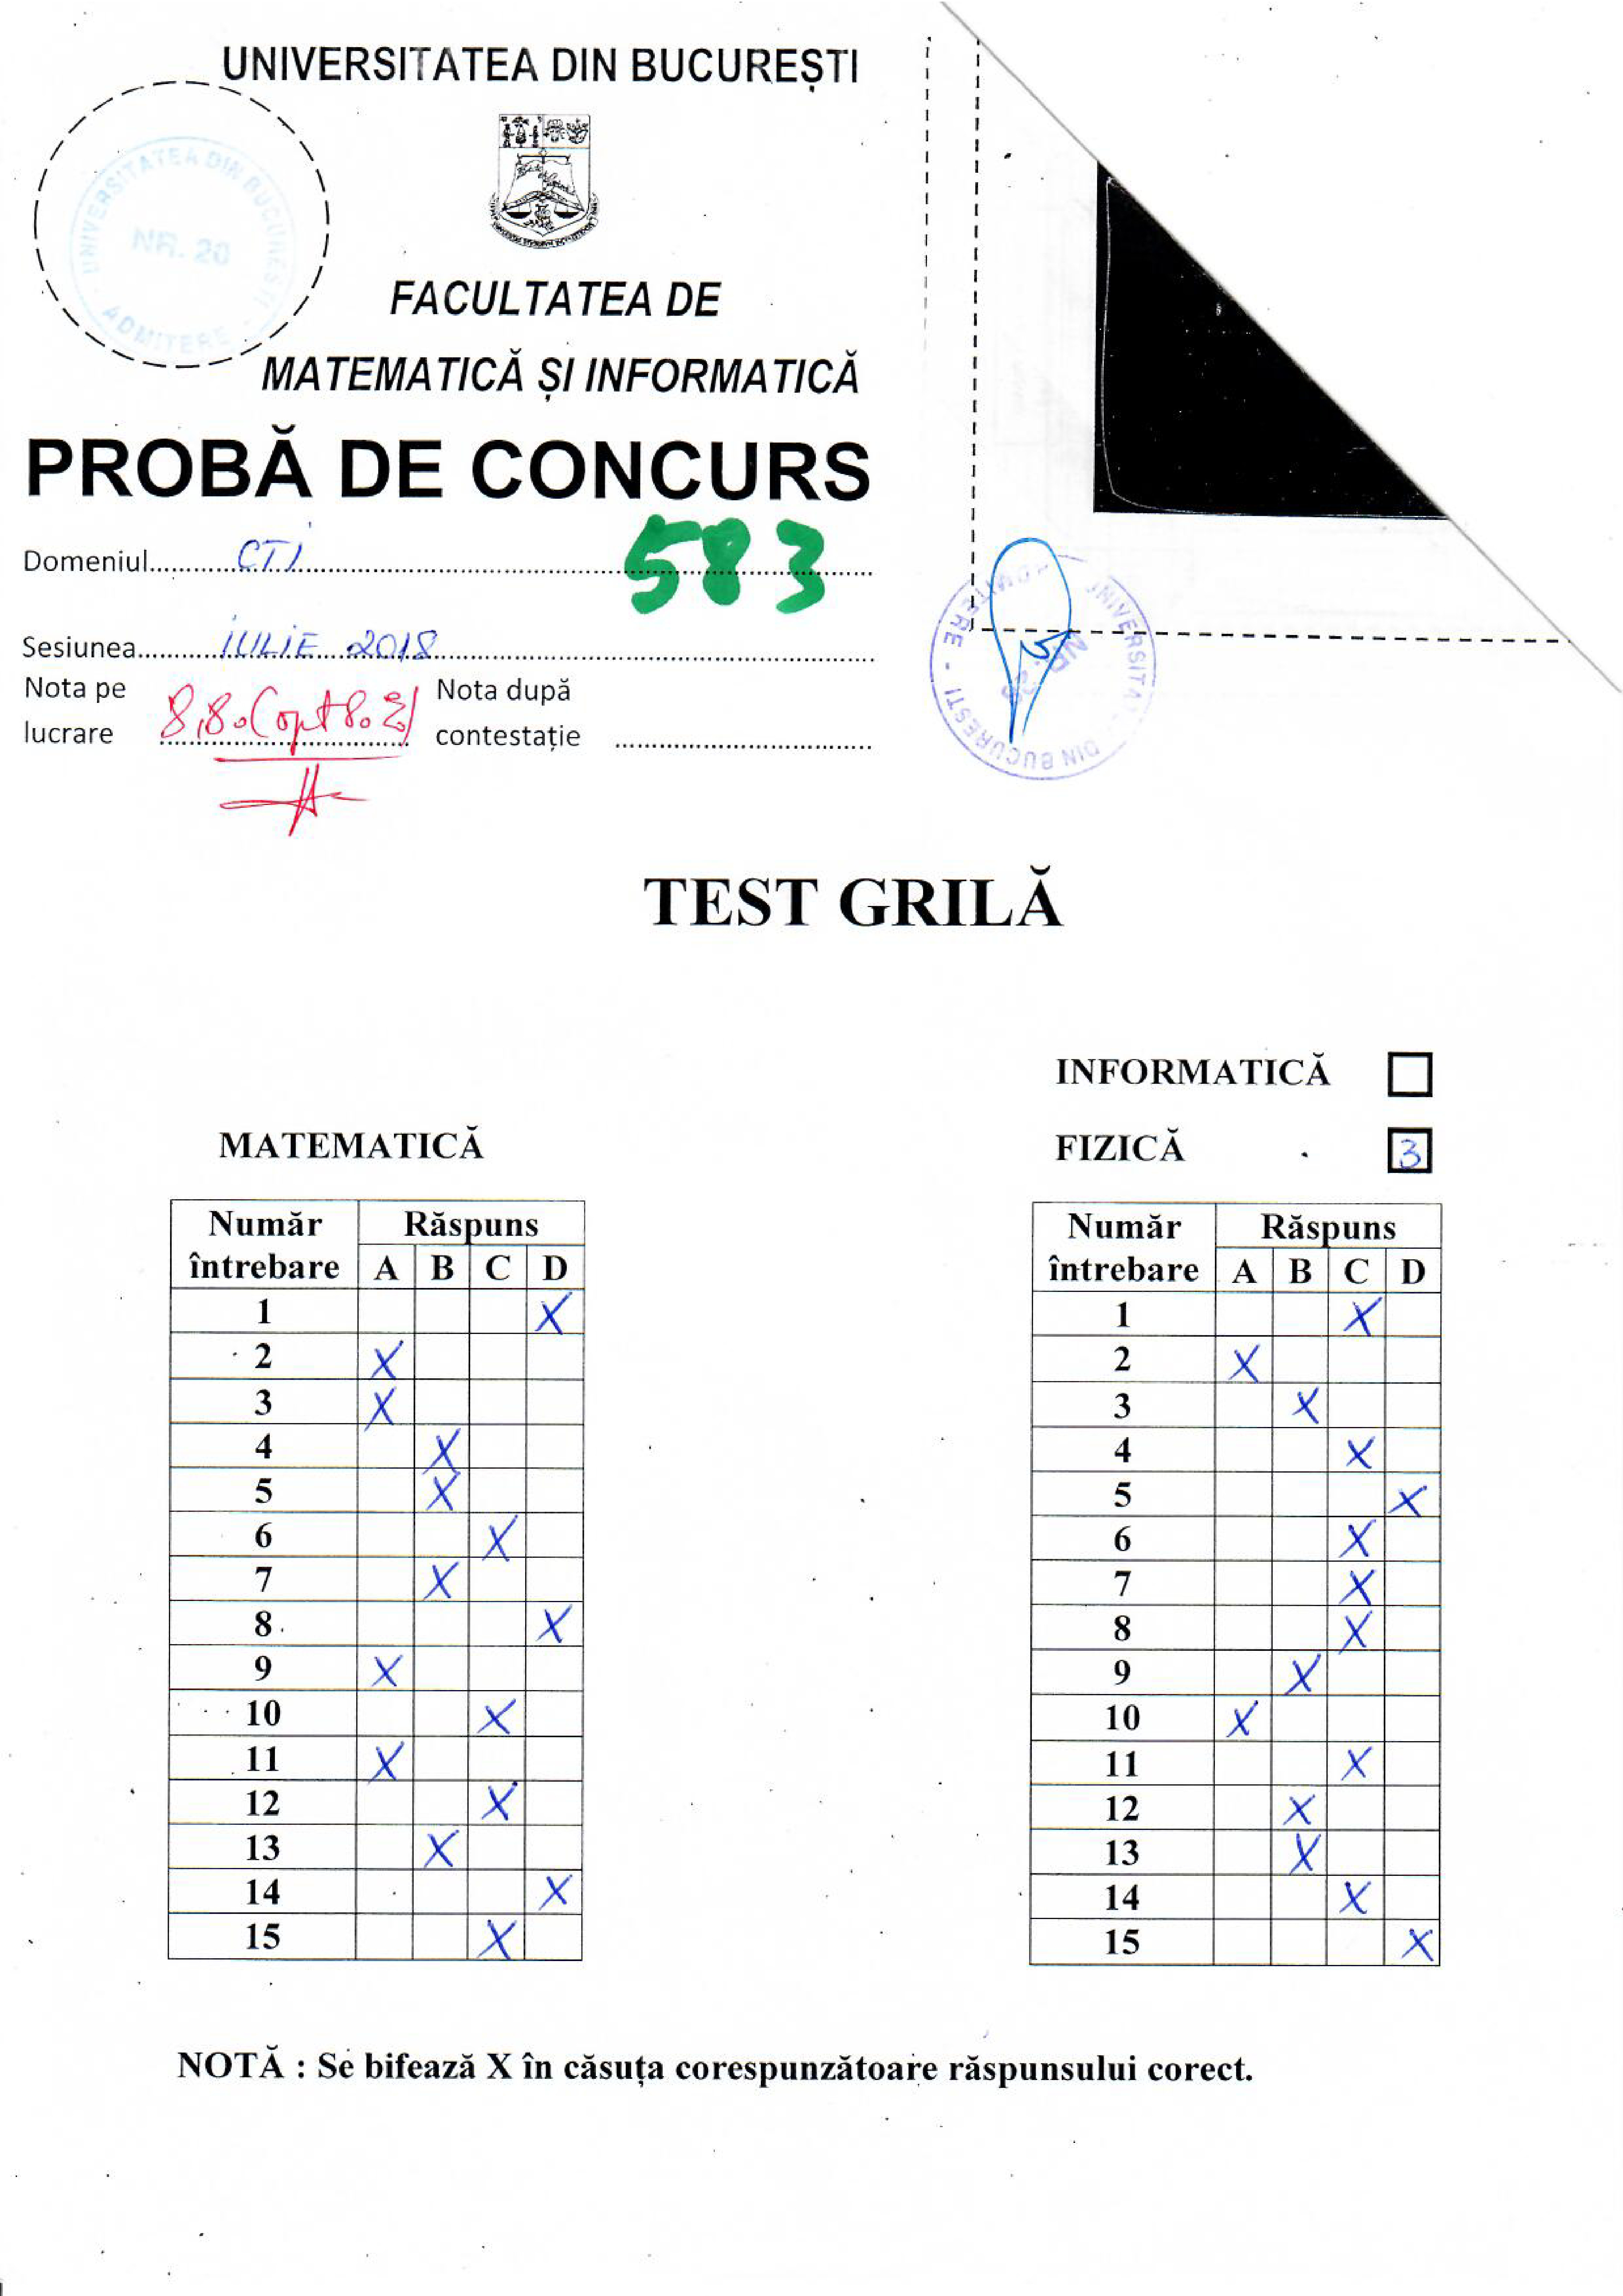 UNIVERSITATEA DIN BUCUREȘTI
UNIVERSITATEA DIN BUCUREȘTI
NR. 20
ADMITERE
FACULTATEA DE
MATEMATICĂ ȘI INFORMATICĂ
PROBĂ DE CONCURS
583
Domeniul CTI
Sesiunea IULIE 2018
Nota pe lucrare 8,80 (opt 80%)
Nota după contestație
UNIVERSITA DIN BUCUREȘTI - ADMITERE -
TEST GRILĂ
INFORMATICĂ
MATEMATICĂ
FIZICĂ 3
Număr întrebare Răspuns
A B C D
1 X
2 X
3 X
4 X
5 X
6 X
7 X
8 X
9 X
10 X
11 X
12 X
13 X
14 X
15 X
Număr întrebare Răspuns
A B C D
1 X
2 X
3 X
4 X
5 X
6 X
7 X
8 X
9 X
10 X
11 X
12 X
13 X
14 X
15 X
NOTĂ : Se bifează X în căsuța corespunzătoare răspunsului corect.